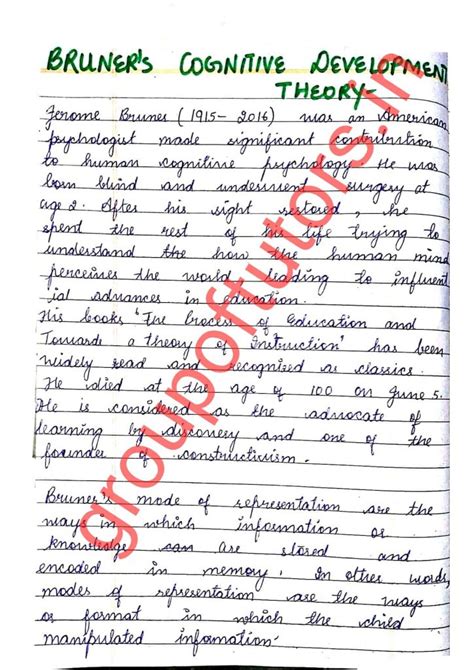 BRUNER'S COGNITIVE DEVELOPMENT
THEORY-
Jerome Bruner (1915- 2016) was an American
psychologist made significant contribution
to human cognitive psychology. He was
born blind and underwent surgery at
age 2. After his sight restored, he
spent the rest of his life trying to
understand the how the human mind
perceives the world, leading to influent
ial advances in education.
His books 'The Process of Education and
Towards a theory of Instruction' has been
widely read and recognized as classics.
He died at the age of 100 on June 5.
He is considered as the advocate of
learning by discovery and one of the
founder of constructivism.
Bruner's mode of representation are the
ways in which information or
knowledge can are stored and
encoded in memory. In other words,
modes of representation are the ways
or format in which the child
manipulated information.
groupoftutors.in